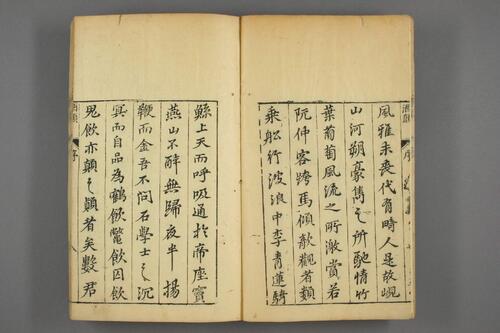 風雅未喪代有時人是故峴
山河朔豪雋之所馳情竹
葉葡萄風流之所激賞若
阮仲容跨馬傾欹觀者類
乘舩行波浪中李青蓮騎
鯨上天而呼吸通於帝座賓
燕山不醉無歸夜半揚
鞭而金吾不問石學士之沉
冥而自品為鶴飲鱉飲囚飲
鬼飲亦顛之顛者矣數君
酒顛
序
序